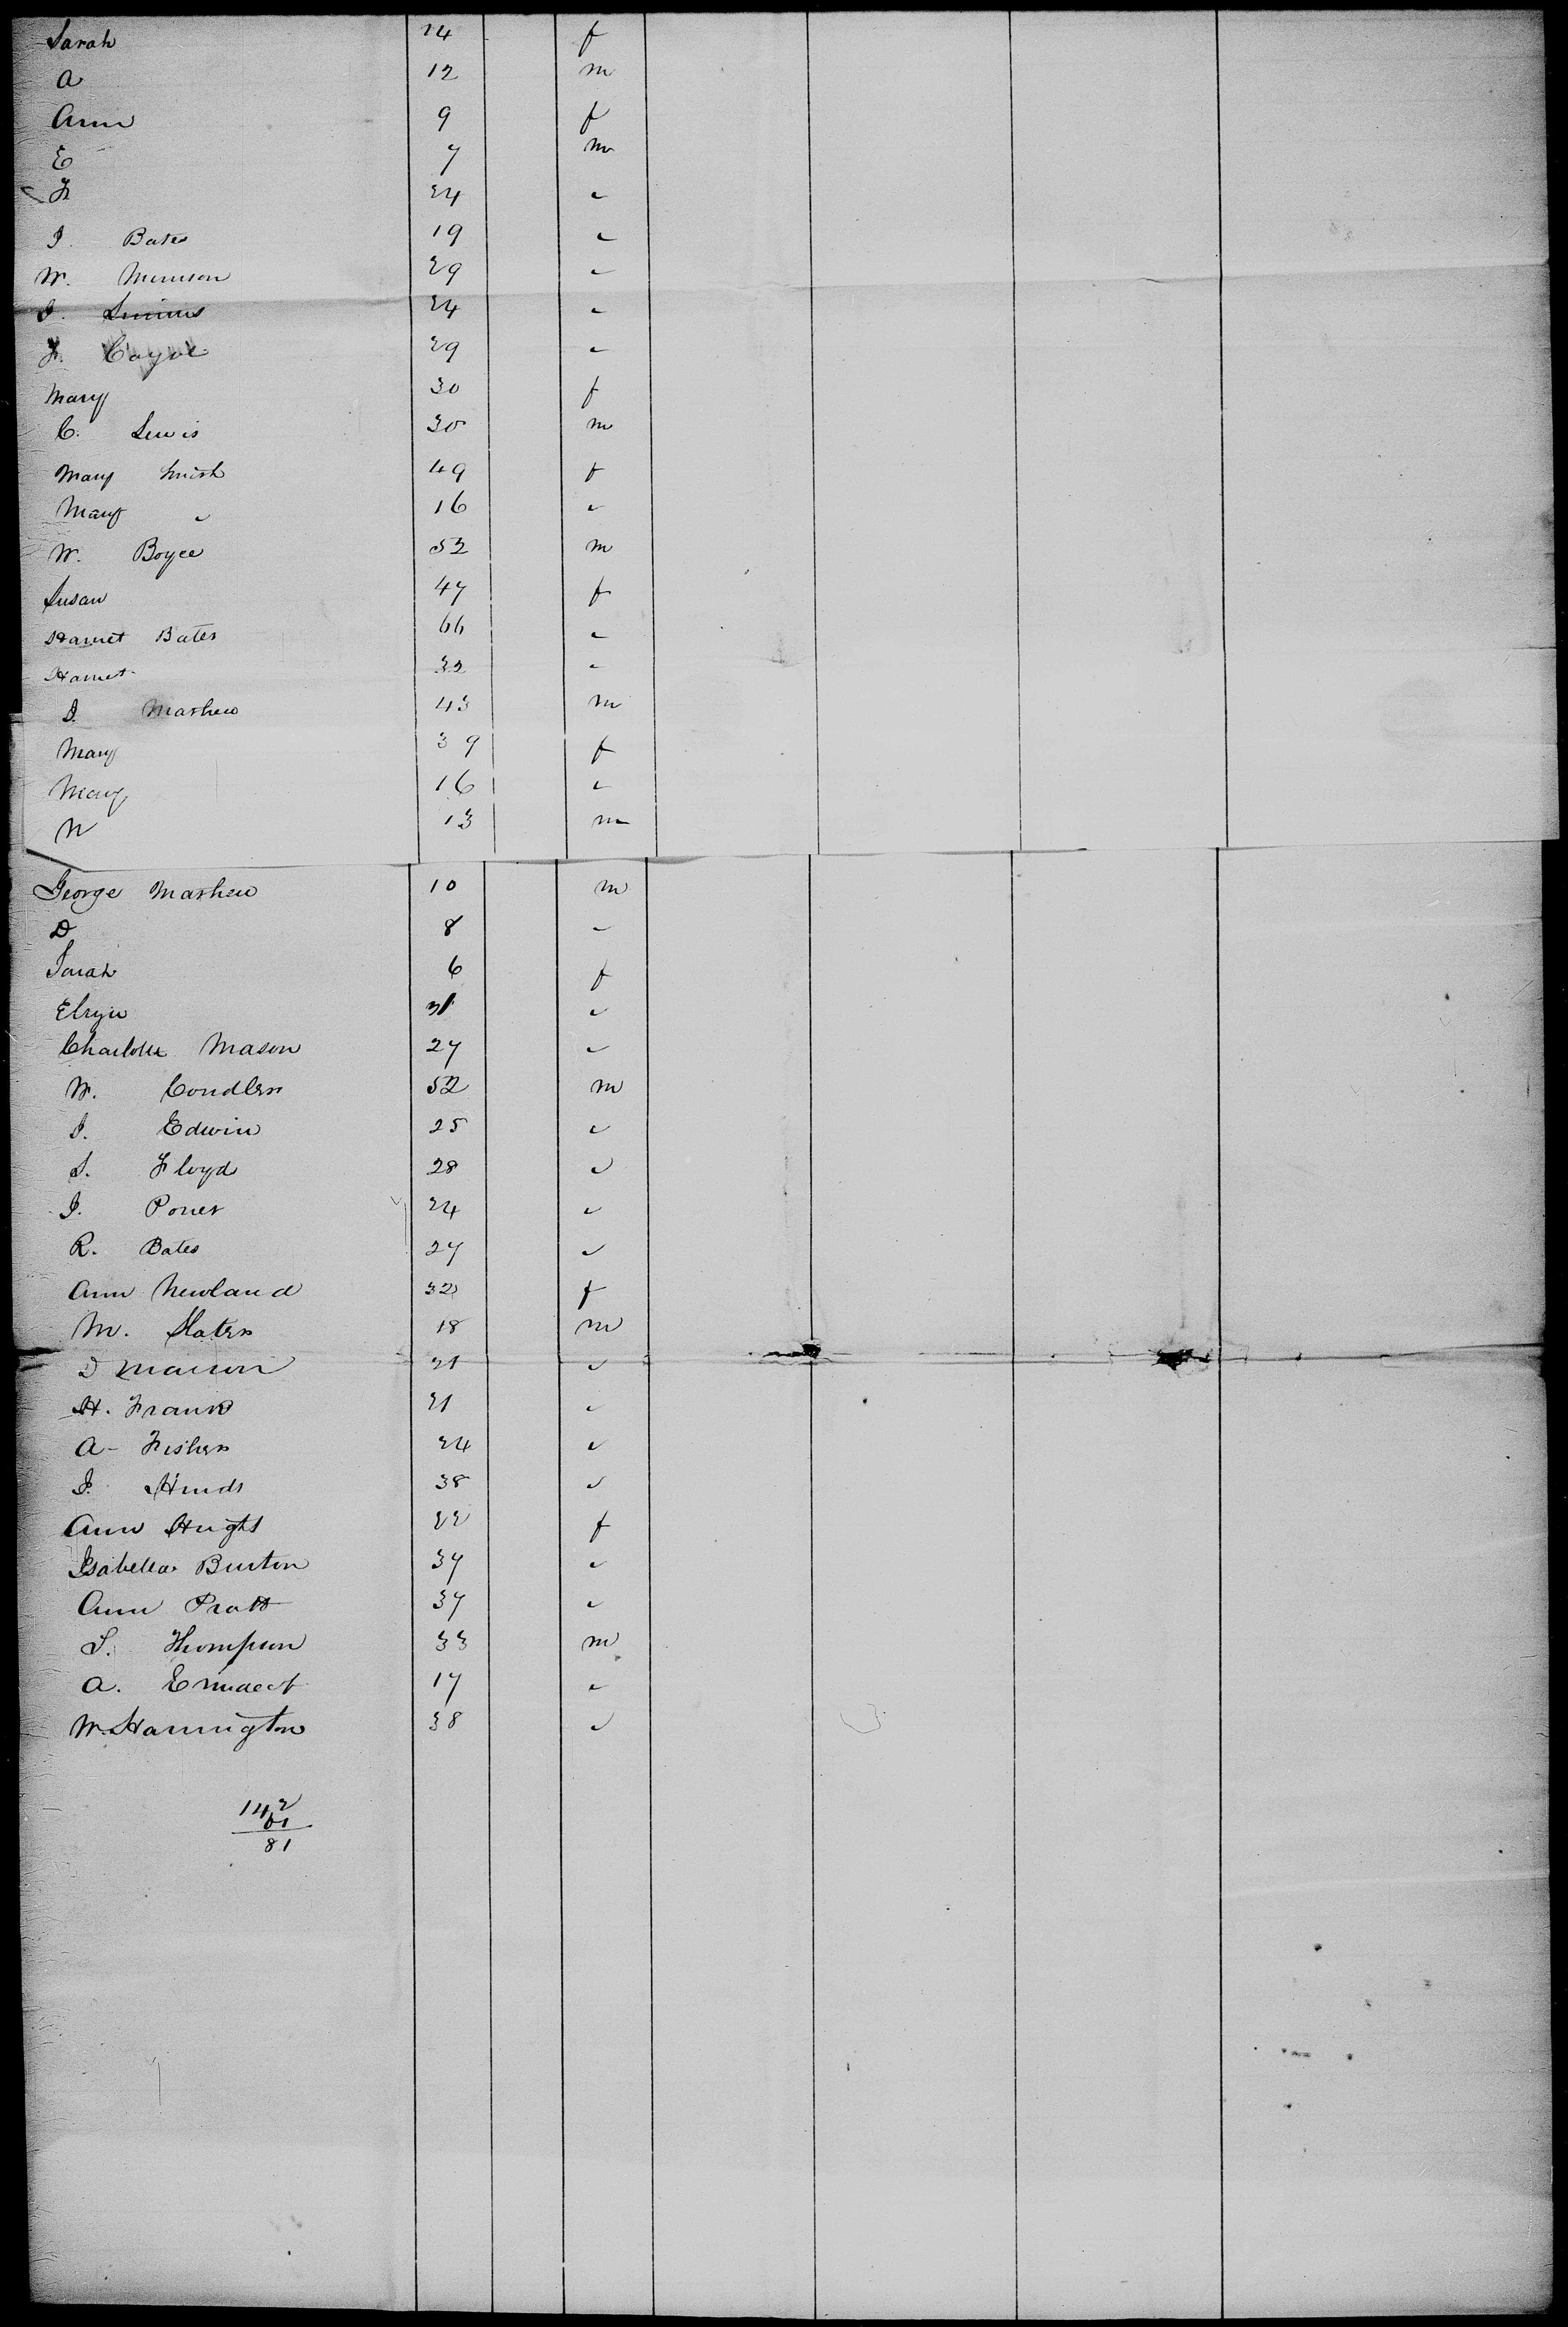 Sarah 14 f
A 12 m
Ann 9 f
E 7 m
F 24 "
J. Bates 19 "
W. Munson 29 "
J. 24 "
F. 29 "
Mary 30 f
C. Lewis 30 m
Mary Smith 49 f
Mary " 16 "
W. Boyce 52 m
Susan 47 f
Harriet Bates 66 "
Harriet 32 "
J. Mashew 43 m
Mary 39 f
Mary 16 "
W 13 m
George Mashew 10 m
D 8 "
Sarah 6 f
31 "
Charlotte Mason 27 "
W. Condler 52 m
J. Edwin 25 "
S. Floyd 28 "
J. 24 "
R. Bates 27 "
Ann Newland 32 f
M. Slater 18 m
D 21 "
H. Frank 21 "
A - Fisher 24 "
J. Hinds 38 "
Ann Hught 22 f
Isabella Burton 37 "
Ann Pratt 37 "
S. Thompson 33 m
A. 17 "
W. Harrington 38 "
142
61
81